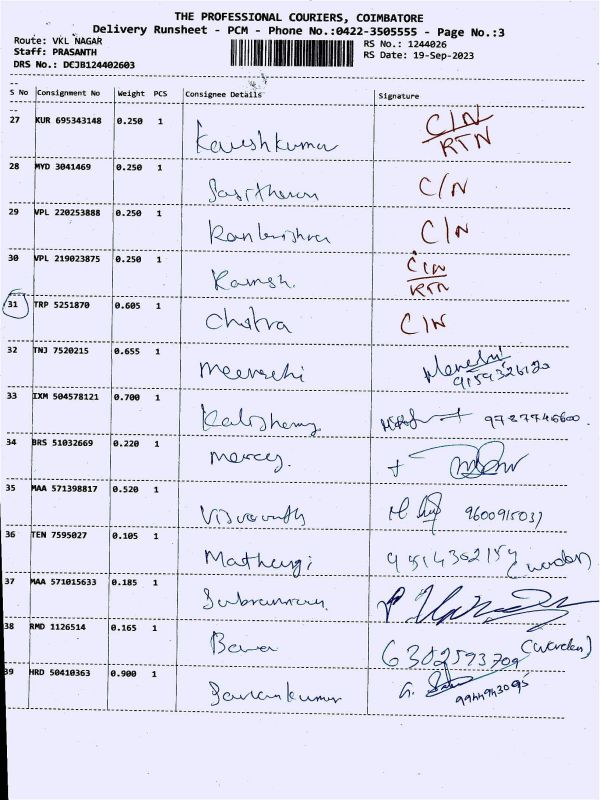 THE PROFESSIONAL COURIERS, COIMBATORE
Delivery Runsheet - PCM - Phone No.:0422-3505555 - Page No.:3
Route: VKL NAGAR RS No.: 1244026
Staff: PRASANTH RS Date: 19-Sep-2023
DRS No.: DCJB124402603
S No Consignment No Weight PCS Consignee Details Signature
27 KUR 695343148 0.250 1 C/N
Kaveshkumar RTN
28 MYD 3041469 0.250 1
Sasitharan C/N
29 VPL 220253888 0.250 1
C/N
30 VPL 219023875 0.250 1 C/N
Ramesh. RTN
31 TRP 5251870 0.605 1
Chitra C/N
32 TNJ 7520215 0.655 1
Meenachi 9159326120
33 IXM 504578121 0.700 1
9787746600.
34 BRS 51032669 0.220 1
Mercy.
35 MAA 571398817 0.520 1
Viswanath 9600915037
36 TEN 7595027 0.105 1
Mathangi 9514302154 (warden)
37 MAA 571015633 0.185 1
38 RMD 1126514 0.165 1
Bava 6302593709 (warden)
39 HRD 50410363 0.900 1
Saravankumar 9944943095